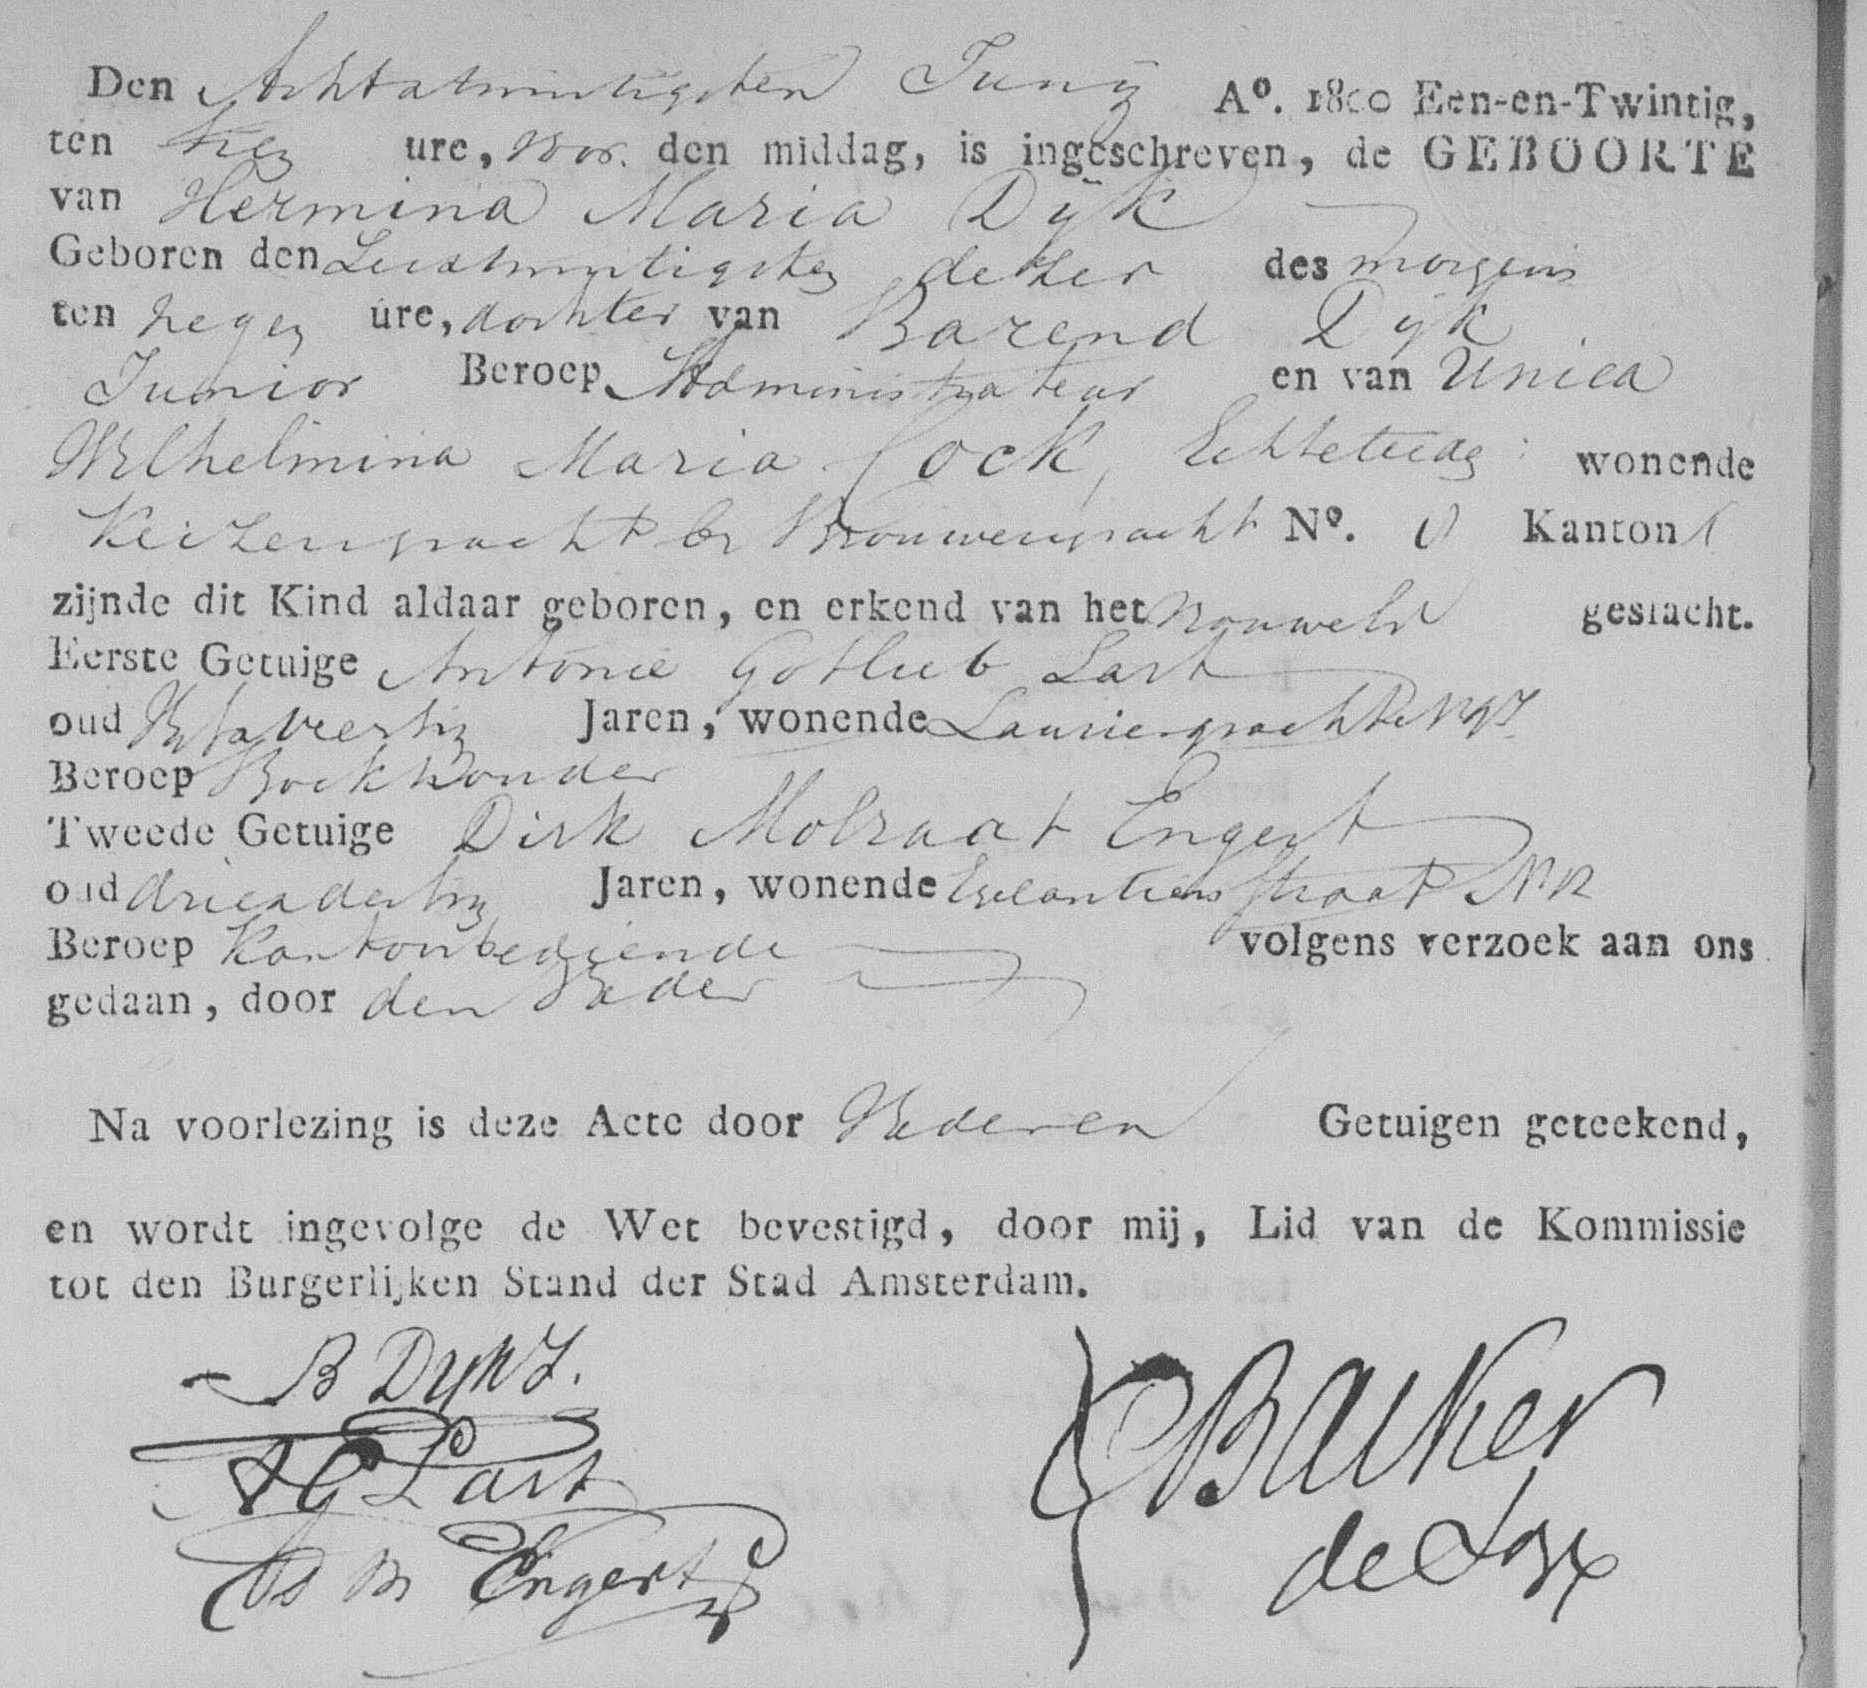 Den Achtatwintigsten Junij Aº. 1800 Een-en-Twintig,
ten tien ure, voor. den middag, is ingeschreven, de GEBOORTE
van Hermina Maria Dijk
Geboren den deser des morgens
ten negen ure, dochter van Barend Dijk
Junior Beroep Administrateur en van Unica
Wilhelmina Maria Cock, Echtelieden wonende
Keizersgracht br Brouwersgracht Nº. 8 Kanton 1
zijnde dit Kind aldaar geboren, en erkend van het Vrouwelk geslacht.
Eerste Getuige Antonie Gotlieb Lart
oud Jaren, wonende Lauriergracht
Beroep Boekhouder
Tweede Getuige Dirk Molraat Engert
oud drieadertig Jaren, wonende Egelantiersstraat
Beroep Kantoorbediende volgens verzoek aan ons
gedaan, door den Vader
Na voorlezing is deze Acte door Vader en Getuigen geteekend,
en wordt ingevolge de Wet bevestigd, door mij, Lid van de Kommissie
tot den Burgerlijken Stand der Stad Amsterdam.
B Dijk J.
A G Lart
D M Engert
Bakker